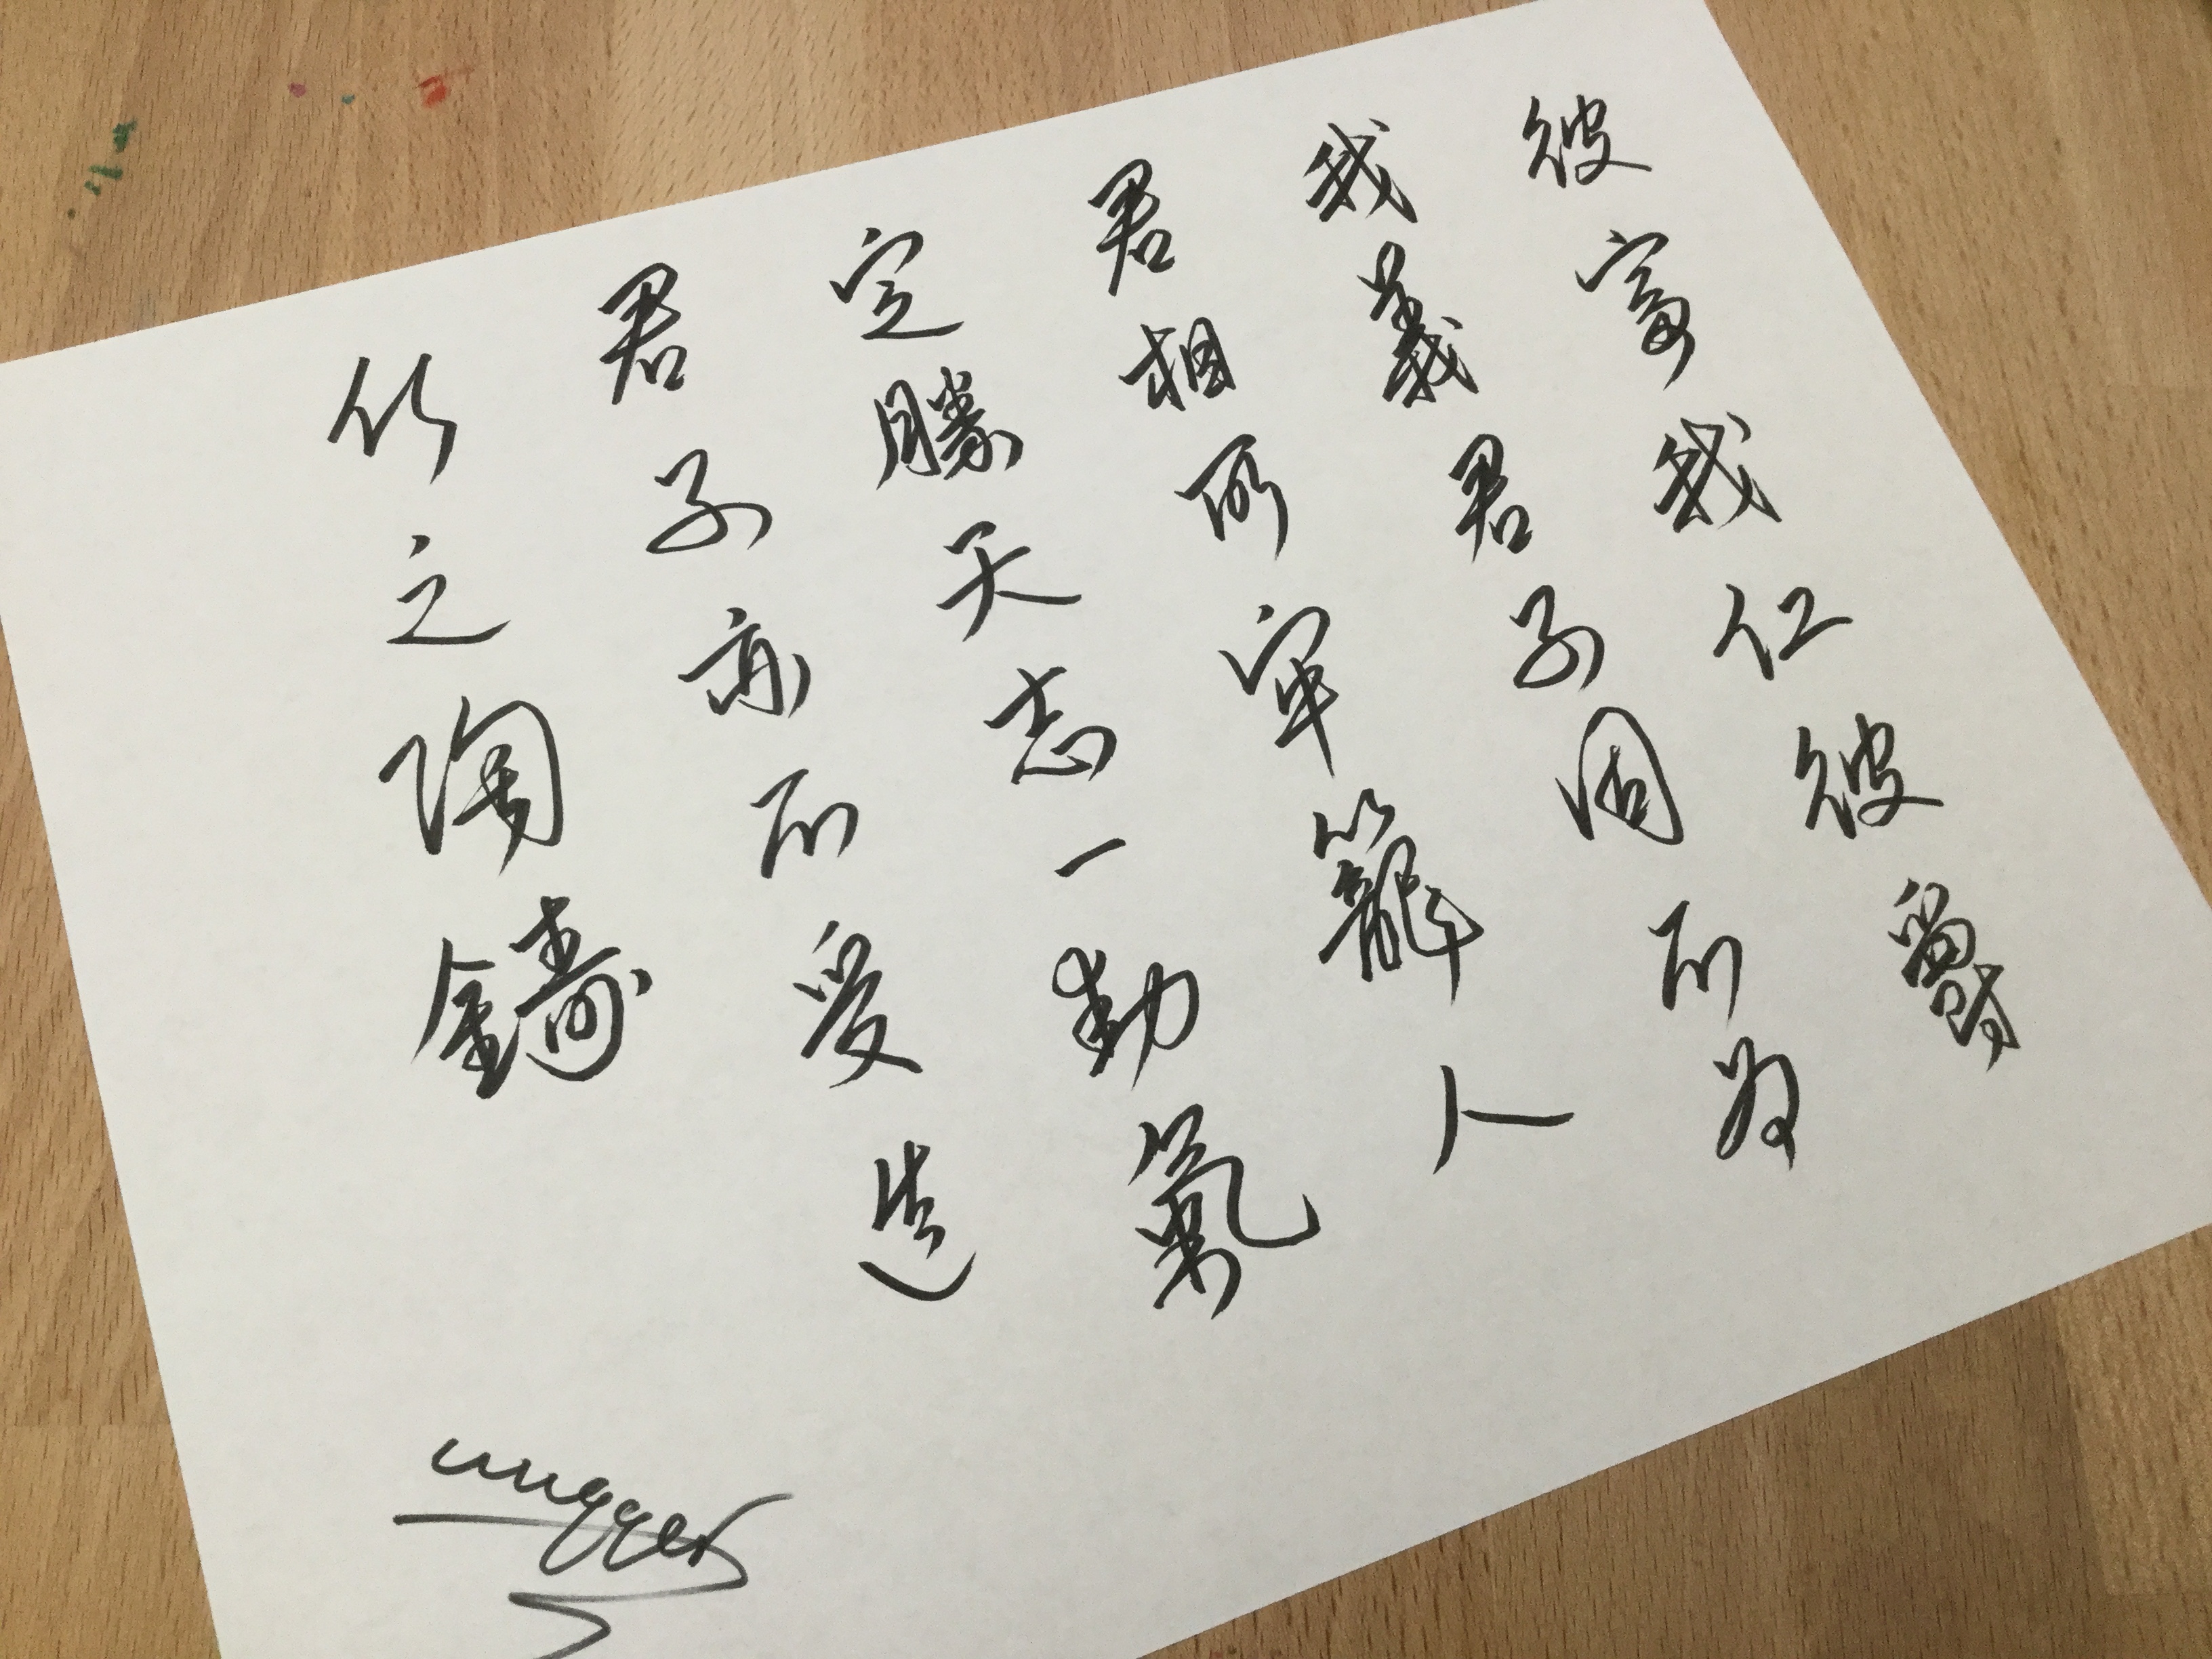 彼富我仁彼爵
我義君子固不為
君相所牢籠人
定勝天志一動氣
君子亦不受造
化之陶鑄